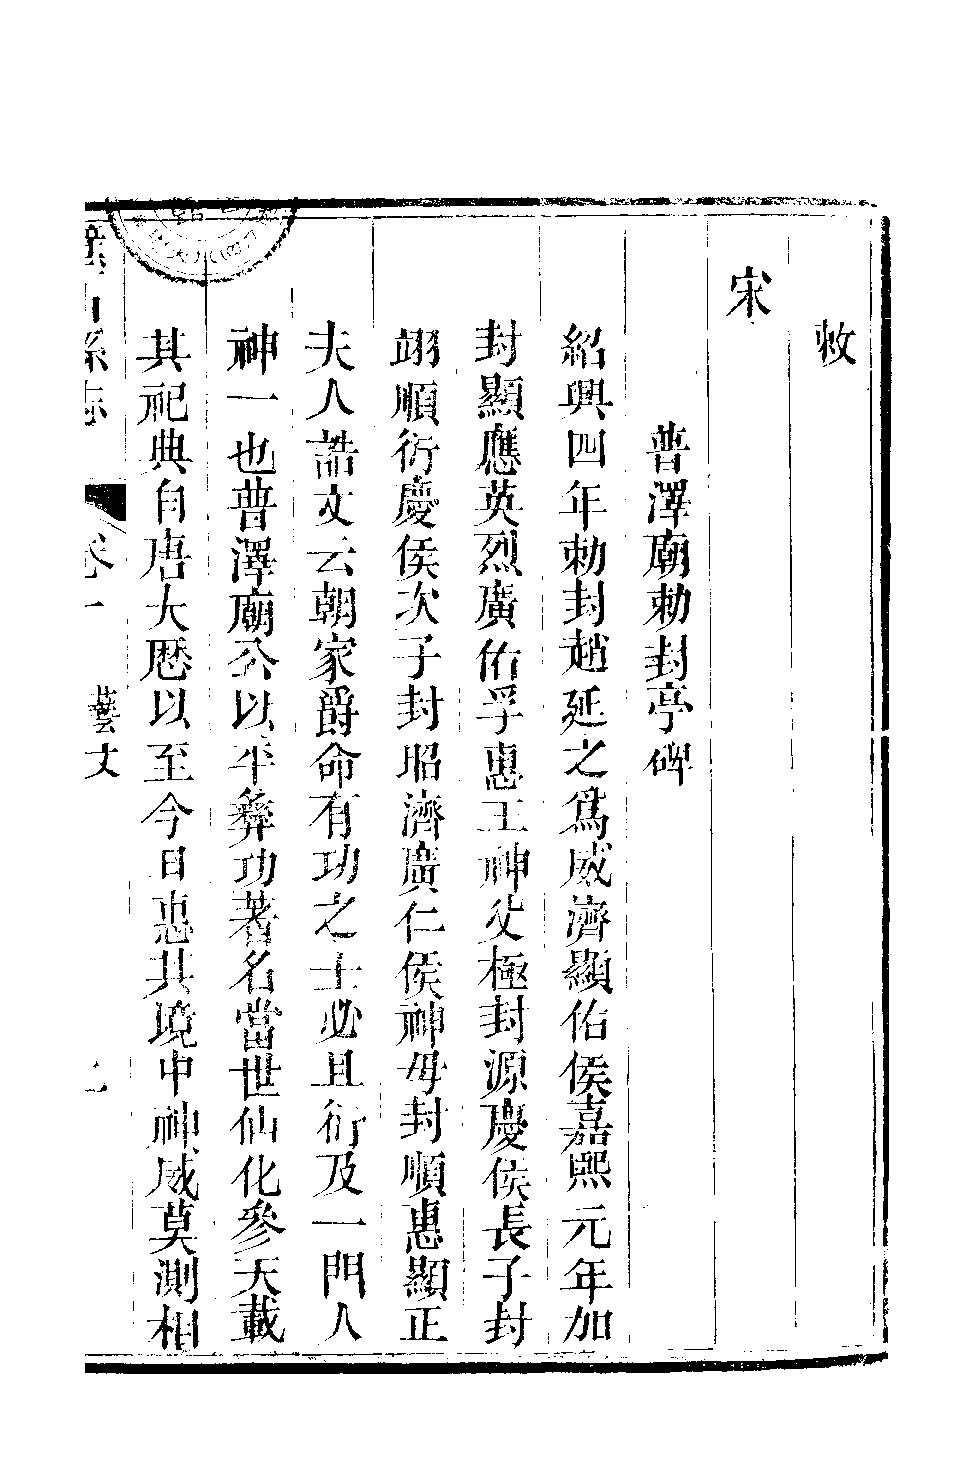 敕
宋
普澤廟勅封亭碑
紹興四年勅封趙延之爲威濟顯佑侯嘉熙元年加
封顯應英烈廣佑孚惠王神父極封源慶侯長子封
翊順衍慶侯次子封昭濟廣仁侯神母封順惠顯正
夫人誥文云朝家爵命有功之士必且衍及一門人
神一也普澤廟公以平彜功著名當世仙化參天載
其祀典自唐大厯以至今日惠其境中神威莫測相
縣志
卷十
藝文